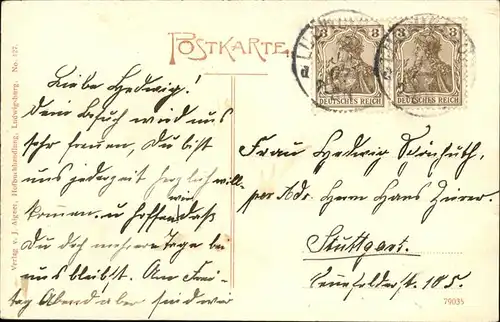 POSTKARTE.
DEUTSCHES REICH
DEUTSCHES REICH
3 3
3 3
Verlag v. J. Aigner, Hofbuchhandlung, Ludwigsburg. No. 127.
Liebe Hedwig!
Dein Besuch wird uns
sehr freuen, Du bist
uns jederzeit herzlich will-
kommen u. hoffen wir daß
Du Dich mehrere Tage bei
uns bleibst. Am Frei-
tag Abend aber sind wir
Frau Hedwig
per Adr. Herrn Hans
Stuttgart.
185.
79035